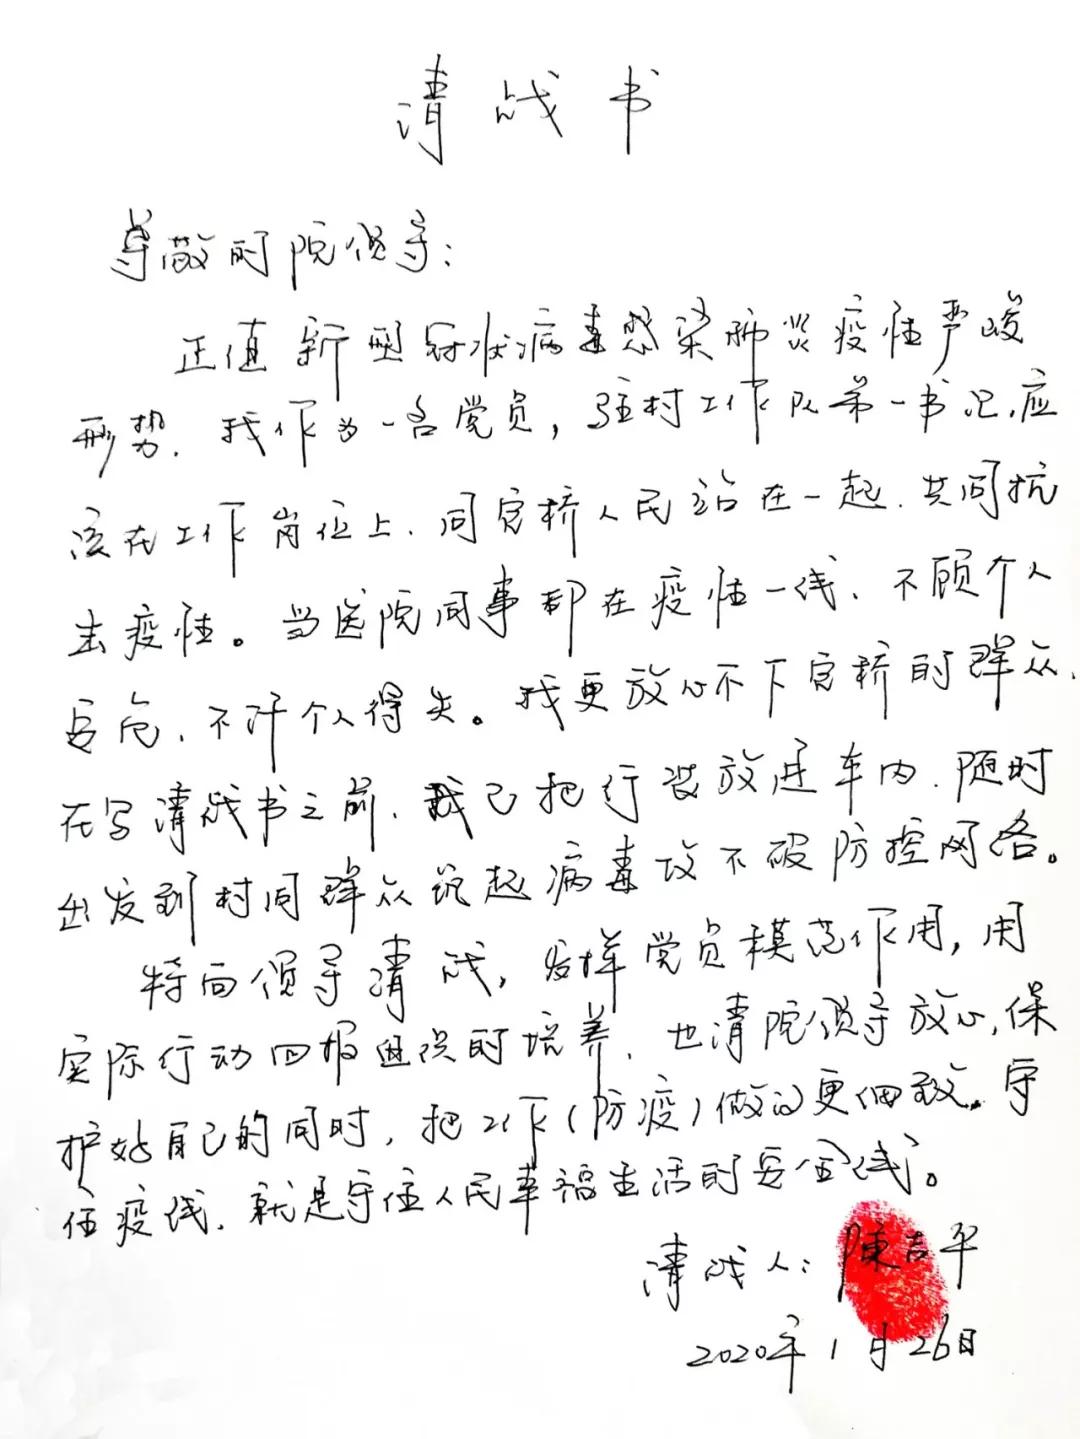 请战书
尊敬的院领导：
正值新型冠状病毒感染肺炎疫情严峻
形势，我作为一名党员，驻村工作队第一书记，应
该在工作岗位上，同官桥人民站在一起，共同抗
击疫情。当医院同事都在疫情一线，不顾个人
安危，不计个人得失。我更放心不下官桥的群众，
在写请战书之前，我已把行装放进车内，随时
出发到村同群众筑起病毒攻不破防控网络。
特向领导请战，发挥党员模范作用，用
实际行动回报医院的培养，也请院领导放心，保
护好自己的同时，把工作（防疫）做的更细致。守
住疫线，就是守住人民幸福生活的安全线。
请战人：陳吉平
2020年1月26日